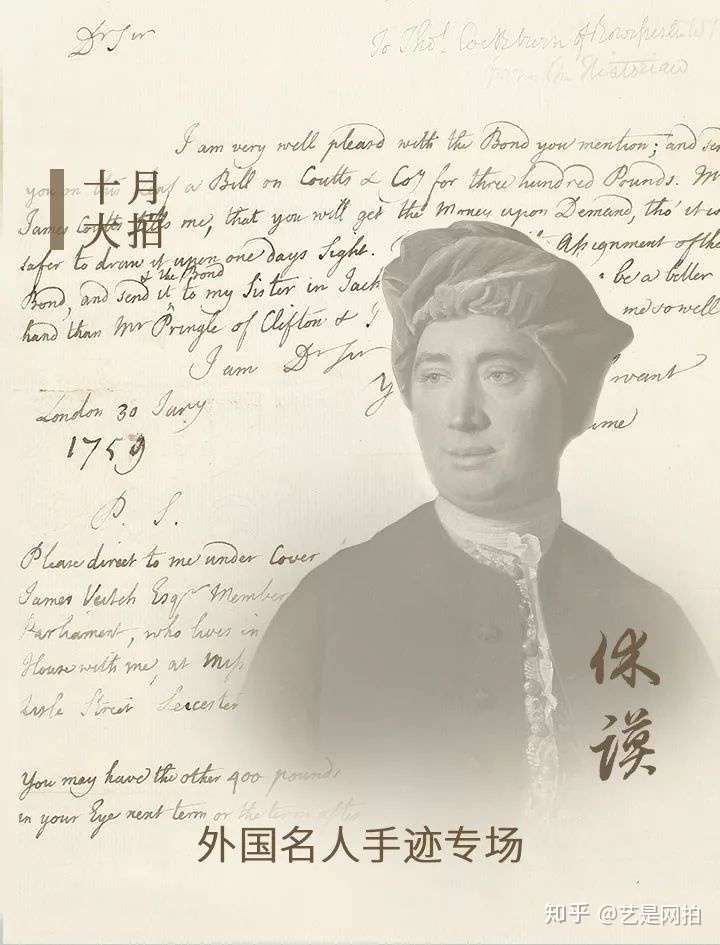 Dr Sir
To Thos. Cockburn of
Historian
I am very well pleasd with the Bond you mention; and
you on this Leaf a Bill on Coutts & Coy for three hundred Pounds. Mr
James Coutts tells me, that you will get the Money upon Demand, tho' it is
safer to draw it upon one days Sight. Assignment of the
Bond, and send it to my Sister in Jack be a better
of the Bond
hand than Mr Pringle of Clifton & me so well
I am Dr Sir
London 30 Jany
1759
P. S.
Please direct to me under Cover
James Veitch Esqr Member
Parliament, who lives in
House with me, at Miss
Lisle Street Leicester
You may have the other 400 pounds
in your Eye next term or the term after
十月
大拍
休谟
外国名人手迹专场
知乎 @艺是网拍